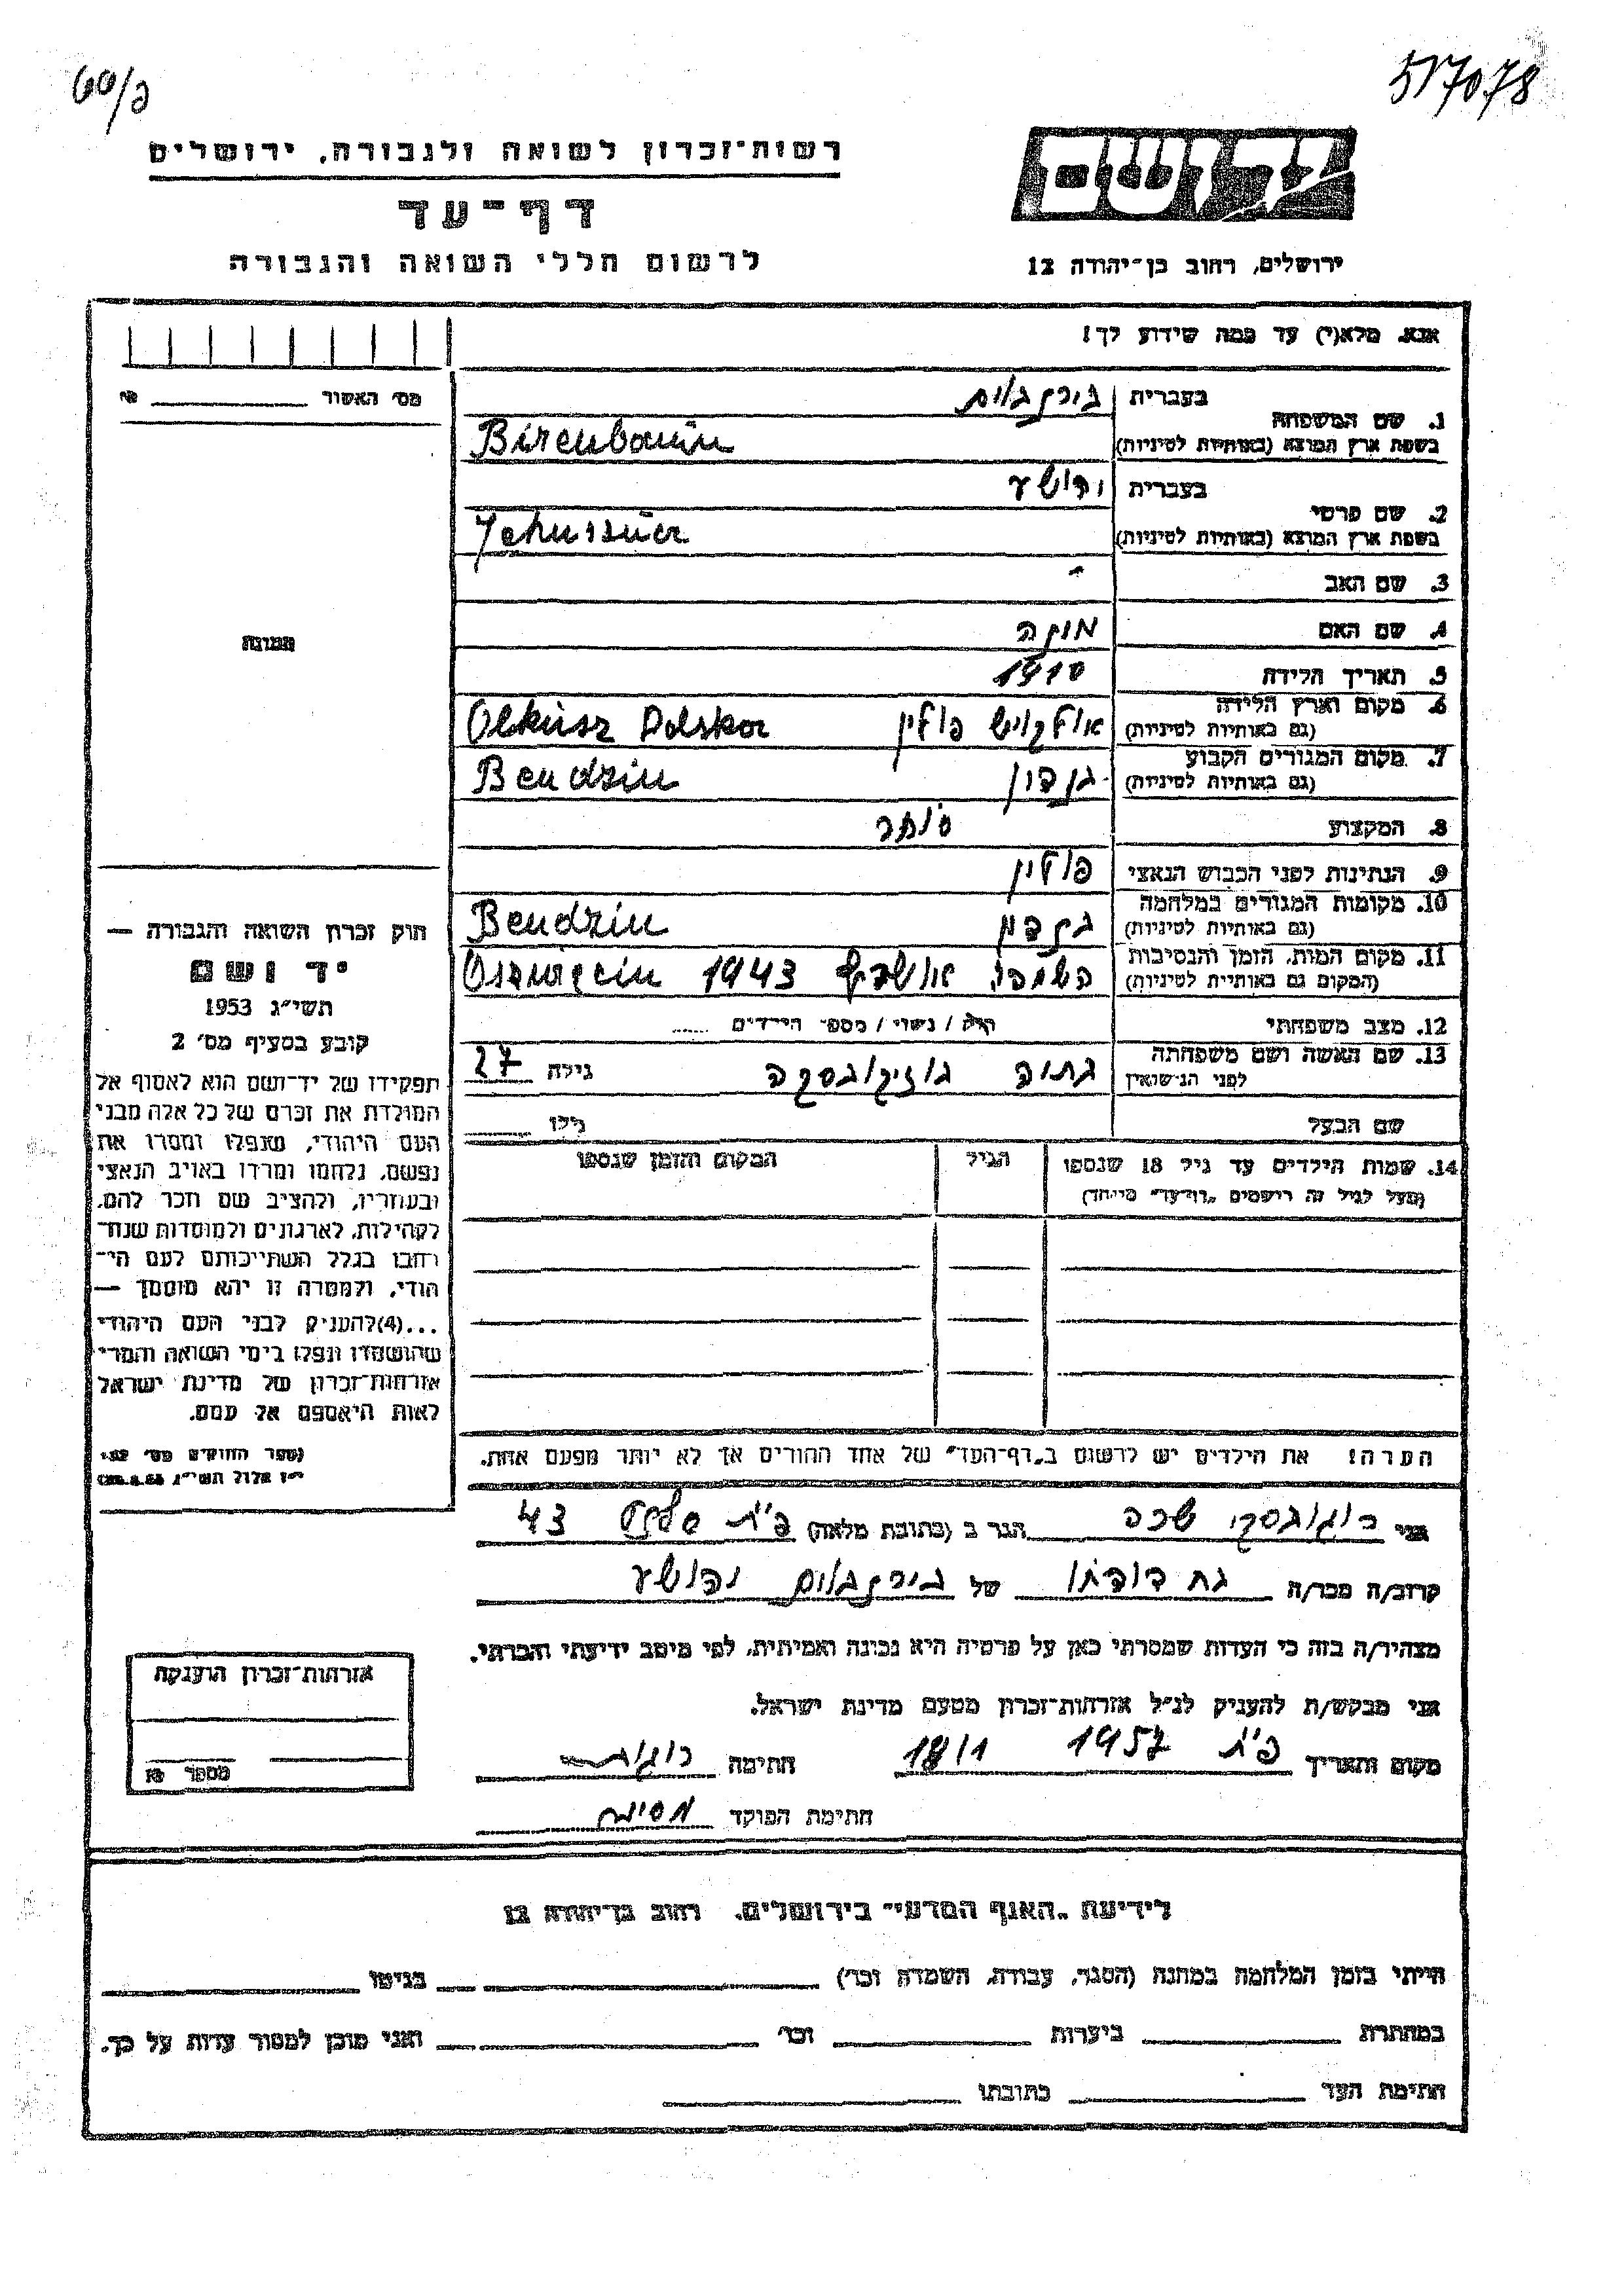 60/פ
517078
רשות־זכרון לשואה ולגבורה, ירושלים
ידושם
דף־עד
לרשום חללי השואה והגבורה
ירושלים, רחוב בן־יהודה 12
אנא, מלא(י) עד כמה שידוע לך!
מס׳ האשור
1. שם המשפחה
בעברית בירנבוים
בשפת ארץ המוצא (באותיות לטיניות) Birenbaum
2. שם פרטי
בעברית יהושע
בשפת ארץ המוצא (באותיות לטיניות) Jehusua
3. שם האב -
4. שם האם
5. תאריך הלידה 1910
6. מקום וארץ הלידה
(גם באותיות לטיניות) אולקוש פולין Olkusz Polska
7. מקום המגורים הקבוע
(גם באותיות לטיניות) בנדין Bendzin
8. המקצוע סוחר
9. הנתינות לפני הכבוש הנאצי פולין
10. מקומות המגורים במלחמה
(גם באותיות לטיניות) בנדין Bendzin
11. מקום המות, הזמן והנסיבות
(המקום גם באותיות לטיניות) אושביץ 1943 Oswięcim
12. מצב משפחתי רוק / נשוי / מספר הילדים
13. שם האשה ושם משפחתה
לפני הנישואין גילה 27
שם הבעל גילו
14. שמות הילדים עד גיל 18 שנספו
(מעל לגיל זה רושמים „דף־עד" מיוחד)
הגיל
המקום והזמן שנספו
הערה! את הילדים יש לרשום ב„דף־העד" של אחד ההורים אך לא יותר מפעם אחת.
תמונה
חוק זכרון השואה והגבורה —
יד ושם
תשי״ג 1953
קובע בסעיף מס׳ 2
תפקידו של יד־ושם הוא לאסוף אל
המולדת את זכרם של כל אלה מבני
העם היהודי, שנפלו ומסרו את
נפשם, נלחמו ומרדו באויב הנאצי
ובעוזריו, ולהציב שם וזכר להם,
לקהילות, לארגונים ולמוסדות שנח־
רבו בגלל השתייכותם לעם הי־
הודי, ולמטרה זו יהא מוסמך —
...(4)להעניק לבני העם היהודי
שהושמדו ונפלו בימי השואה והמרי
אזרחות־זכרון של מדינת ישראל
לאות היאספם אל עמם.
(ספר החוקים מס׳ 132,
י״ז אלול תשי״ג
אני הגר ב (כתובת מלאה) 43
קרוב/ה מכר/ה בת דודתו של בירנבוים יהושע
מצהיר/ה בזה כי העדות שמסרתי כאן על פרטיה היא נכונה ואמיתית, לפי מיטב ידיעתי והכרתי.
אני מבקש/ת להעניק לנ״ל אזרחות־זכרון מטעם מדינת ישראל.
מקום ותאריך פ״ת 1957 18/1 חתימה
חתימת הפוקד
אזרחות־זכרון הוענקה
מספר
לידיעת „האגף המדעי" בירושלים, רחוב בן־יהודה 12
הייתי בזמן המלחמה במחנה (הסגר, עבודה, השמדה וכו׳) בגיטו
במחתרת ביערות וכו׳ ואני מוכן למסור עדות על כך.
חתימת העד כתובתו